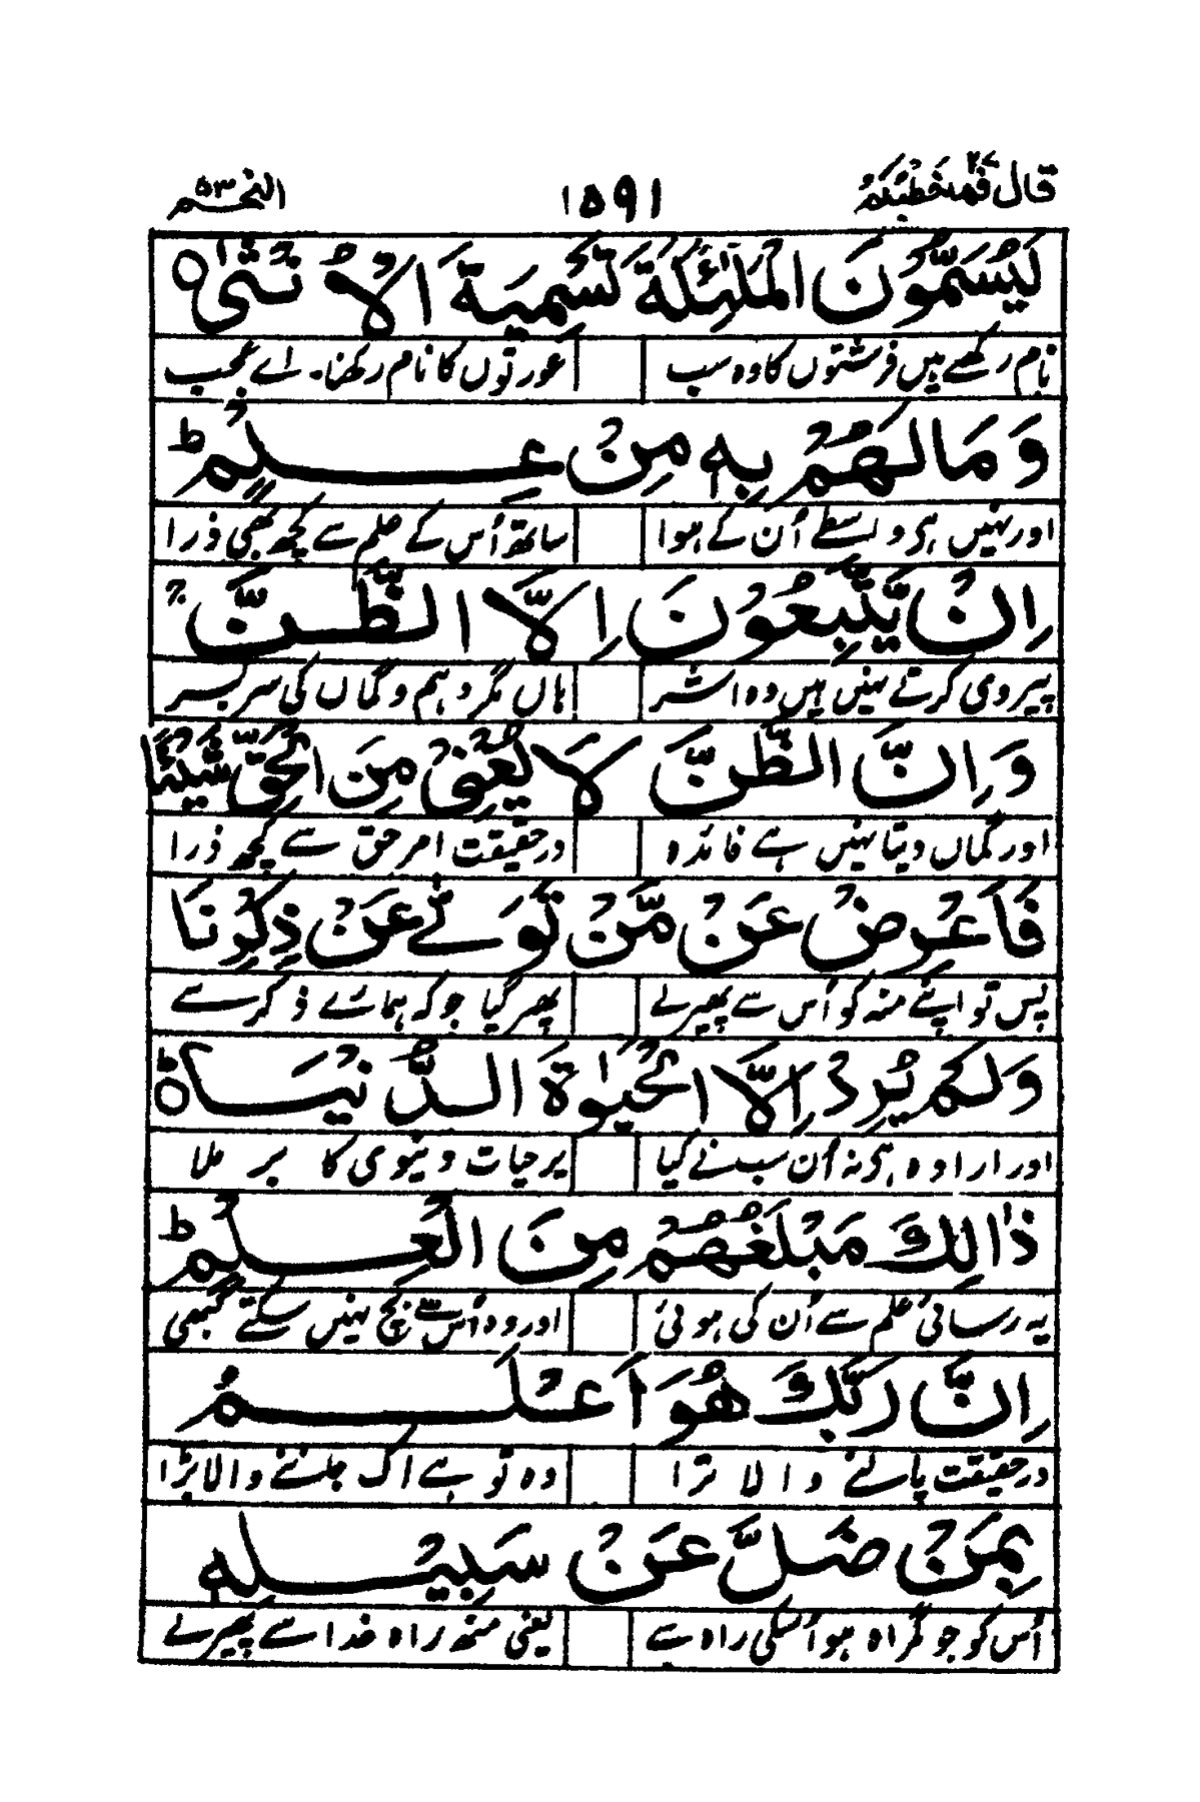 قال فما خطبکم ۲۷ ۱۵۹۱ النجم ۵۳
لَيُسَمُّوْنَ الْمَلٰٓئِكَةَ تَسْمِيَةَ الْاُنْثٰى ۝
نام رکھتے ہیں فرشتوں کا وہ سب عورتوں کا نام رکھنا۔ اے عجب
وَمَا لَهُمْ بِهٖ مِنْ عِلْمٍ ؕ
اور نہیں ہی واسطے اُن کے ہوا ساتھ اُس کے علم سے کچھ بھی ذرا
اِنْ يَّتَّبِعُوْنَ اِلَّا الظَّنَّ ۚ
پیروی کرتے نہیں ہیں وہ اشر ہاں مگر وہم و گماں کی سر بسر
وَاِنَّ الظَّنَّ لَا يُغْنِيْ مِنَ الْحَقِّ شَيْئًا
اور گماں دیتا نہیں ہے فائدہ در حقیقت امر حق سے کچھ ذرا
فَاَعْرِضْ عَنْ مَّنْ تَوَلّٰى عَنْ ذِكْرِنَا
پس تو اپنے منہ کو اُس سے پھیر لے پھر گیا جو کہ ہمارے ذکر سے
وَلَمْ يُرِدْ اِلَّا الْحَيٰوةَ الدُّنْيَا ۝ؕ
اور ارادہ ہی نہ اُن سب نے کیا پر حیات دنیوی کا بر ملا
ذٰلِكَ مَبْلَغُهُمْ مِنَ الْعِلْمِ ؕ
یہ رسائی علم سے اُن کی ہوئی اور وہ اُس سے بچ نہیں سکتے کبھی
اِنَّ رَبَّكَ هُوَ اَعْلَمُ
در حقیقت پالنے والا ترا وہ تو ہے اک جاننے والا بڑا
بِمَنْ ضَلَّ عَنْ سَبِيْلِهٖ
اُس کو جو گمراہ ہوا اُسکی راہ سے یعنی منھ راہ خدا سے پھیر لے